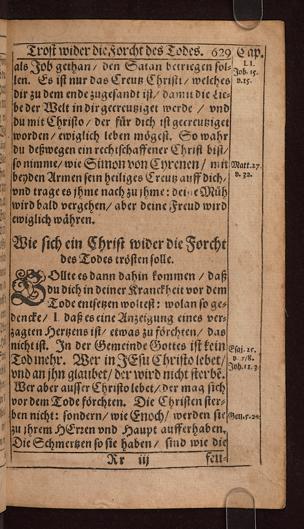 Trost wider die Forcht des Todes. 629
Cap.
LI.
Job. 15.
v. 15.
als Job gethan / den Satan betriegen sol-
len. Es ist nur das Creutz Christi / welches
dir zu dem ende zugesandt ist / damit die Lie-
be der Welt in dir gecreutziget werde / vnd
du mit Christo / der für dich ist gecreutziget
worden / ewiglich leben mögest. So wahr
du deßwegen ein rechtschaffener Christ bist /
so nimme / wie Simon von Cyrenen / mit
Matt. 27.
v. 32.
beyden Armen sein heiliges Creutz auff dich /
vnd trage es jhme nach zu jhme: deine Müh
wird bald vergehen / aber deine Freud wird
ewiglich währen.
Wie sich ein Christ wider die Forcht
des Todes trösten solle.
SOllte es dann dahin kommen / daß
du dich in deiner Kranckheit vor dem
Tode entsetzen woltest: wolan so ge-
dencke / 1. daß es eine Anzeigung eines ver-
zagten Hertzens ist / etwas zu förchten / das
nicht ist. In der Gemeinde Gottes ist kein
Tod mehr. Wer in JEsu Christo lebet /
vnd an jhn glaubet / der wird nicht sterbē.
Wer aber ausser Christo lebet / der mag sich
vor dem Tode förchten. Die Christen ster-
ben nicht: sondern / wie Enoch / werden sie
Gen. 5. 24.
zu jhrem HErzen vnd Haupt auffgerhaben.
Die Schmertzen so sie haben / sind wie die
Rr iij
feu-